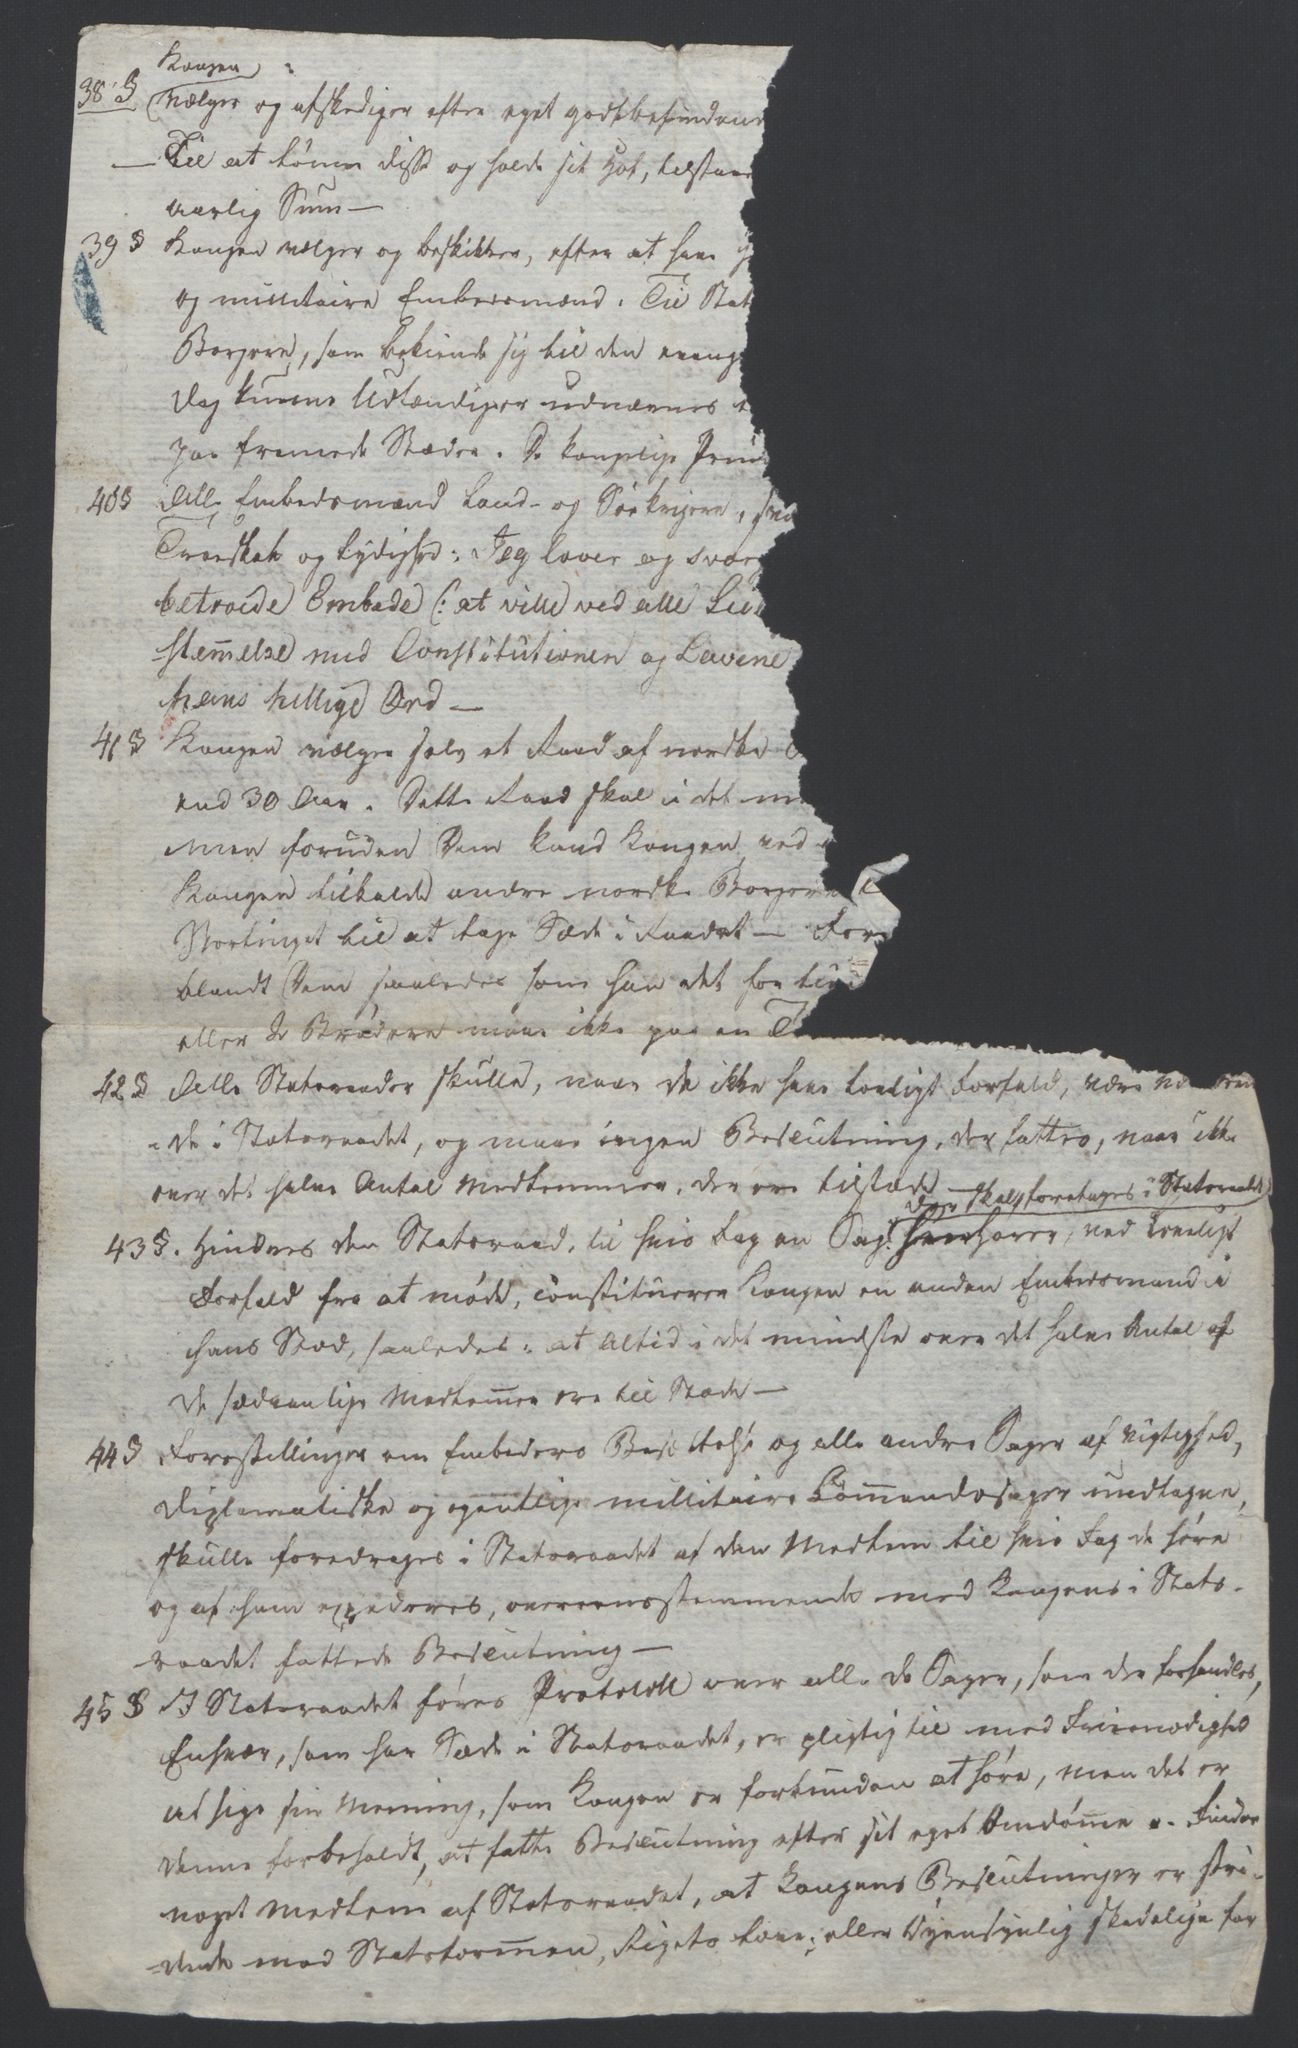 Kongen
38 § vælger og afskediger efter eget godtbefindende
Til at lønne disse og holde sit Hof, tilstaaes
aarlig Sum —
39 § Kongen vælger og beskikker, efter at have
og millitaire Embedsmænd. Til Stat
Borgere, som bekiende sig til den evang
dog kunne Udlændiger udnævnes
paa fremmede Stæder. De kongelige Prin
40 § Alle Embedsmænd Land- og Søekrigere,
Troeskab og Lydighed: Jeg lover og sværg
betroede Embede (: at ville ved alle
stem̄else med Constitutionen og Lovene
hans hellige Ord —
41 § Kongen vælger selv et Raad af norske
end 30 Aar. Dette Raad skal i det m
men foruden dem kand Kongen, ved
Kongen tilkalde andre norske Borgere
Stortinget til at tage Sæde i Raadet — For
blandt dem saaledes som han det for
eller 2 Brødere maae ikke paa en T
42 § Alle Statsraader skulle, naar de ikke have lovligt Forfald, være nærværen
-de i Statsraadet, og maae ingen Beslutning, der fattes, naar ikke
over det halve Antal Medlemmer, der ere tilstæde —
der skal foretages i Statsraadet
43 §. Hindres den Statsraad, til hvis Fag en Sag henhører, ved lovligt
Forfald fra at møde, constituerer Kongen en anden Embedsmand i
hans Sted, saaledes: at altid i det mindste over det halve Antal af
de sædvanlige Medlem̄er ere til Stede —
44 § Forestillinger om Embeders Besættelse og alle andre Sager af Vigtighed,
diplomatiske og egentlige millitaire Com̄andosager undtagne,
skulle foredrages i Statsraadet af den Medlem til hvis Fag de høre
og af ham expederes, overeensstemmende med Kongens i Stats-
raadet fattede Beslutning —
45 § I Statsraadet føres Protokoll over alle de Sager, som der forhandles,
Enhver, som har Sæde i Statsraadet, er pligtig til med Frimodighed
at sige sin Mening, som Kongen er forbunden at høre, men det er
denne forbeholdt, at fatte Beslutning efter sit eget Omdøm̄e. Finder
noget Medlem af Statsraadet, at Kongens Beslutninger er stri-
-dende mod Statsform̄en, Rigets Love, eller Øyensynlig skadelige for